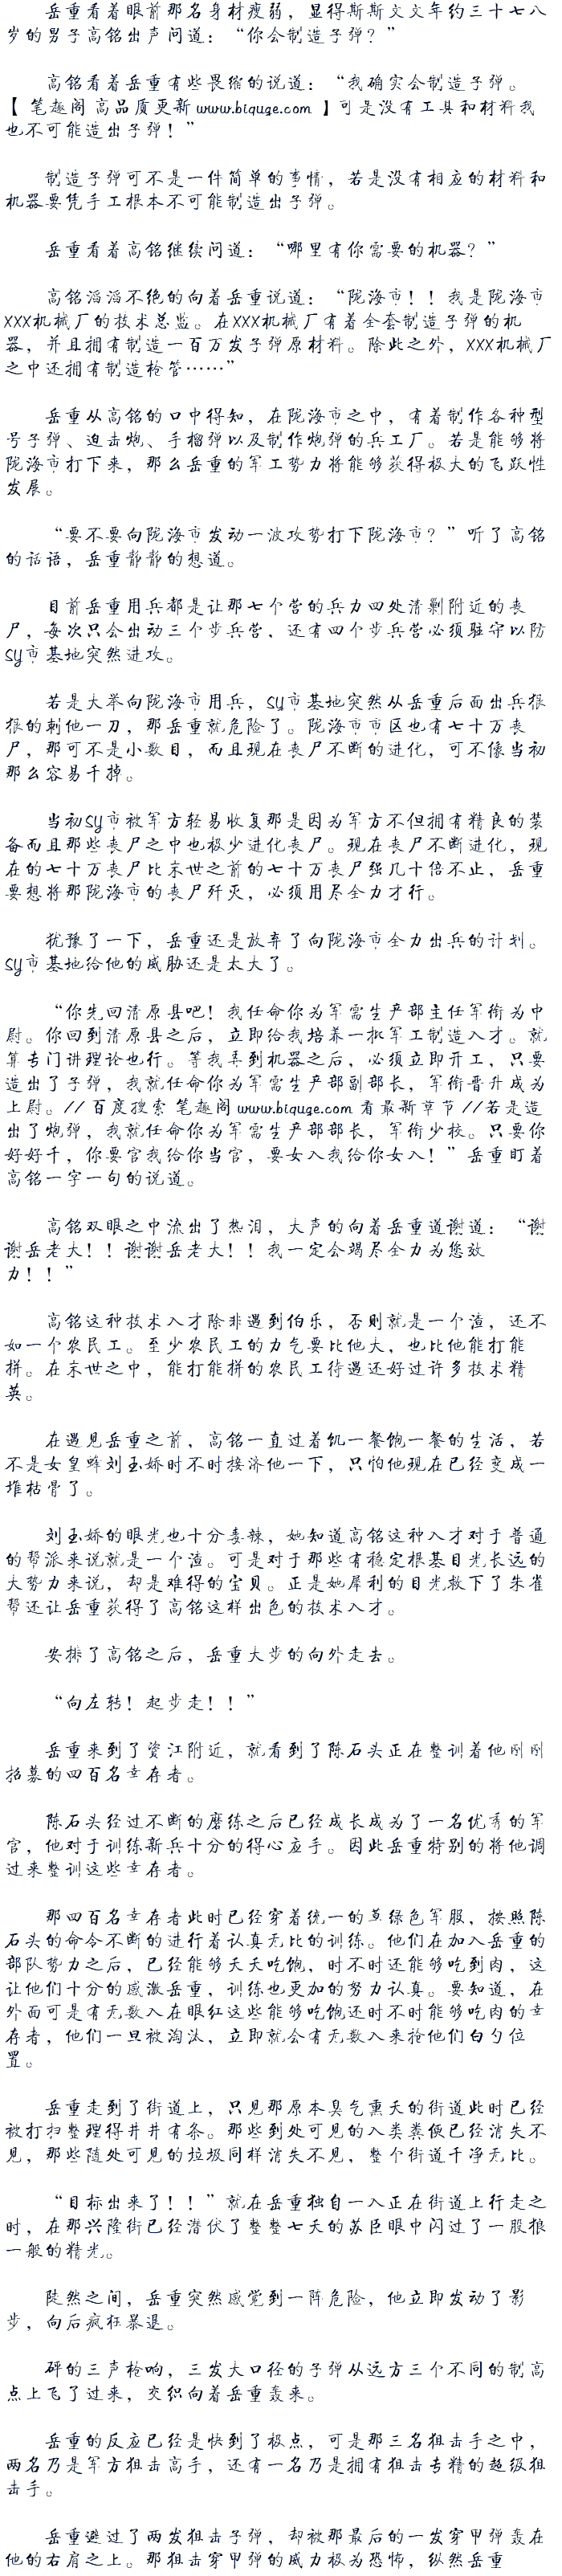 岳重看着眼前那名身材瘦弱，显得斯斯文文年约三十七八
岁的男子高铭出声问道：“你会制造子弹？”
高铭看着岳重有些畏缩的说道：“我确实会制造子弹。
【 笔趣阁 高品质更新 www.biquge.com 】可是没有工具和材料我
也不可能造出子弹！”
制造子弹可不是一件简单的事情，若是没有相应的材料和
机器要凭手工根本不可能制造出子弹。
岳重看着高铭继续问道：“哪里有你需要的机器？”
高铭滔滔不绝的向着岳重说道：“陇海市！！我是陇海市
XXX机械厂的技术总监。在XXX机械厂有着全套制造子弹的机
器，并且拥有制造一百万发子弹原材料。除此之外，XXX机械厂
之中还拥有制造枪管……”
岳重从高铭的口中得知，在陇海市之中，有着制作各种型
号子弹、迫击炮、手榴弹以及制作炮弹的兵工厂。若是能够将
陇海市打下来，那么岳重的军工势力将能够获得极大的飞跃性
发展。
“要不要向陇海市发动一波攻势打下陇海市？”听了高铭
的话语，岳重静静的想道。
目前岳重用兵都是让那七个营的兵力四处清剿附近的丧
尸，每次只会出动三个步兵营，还有四个步兵营必须驻守以防
SY市基地突然进攻。
若是大举向陇海市用兵，SY市基地突然从岳重后面出兵狠
狠的刺他一刀，那岳重就危险了。陇海市市区也有七十万丧
尸，那可不是小数目，而且现在丧尸不断的进化，可不像当初
那么容易干掉。
当初SY市被军方轻易收复那是因为军方不但拥有精良的装
备而且那些丧尸之中也极少进化丧尸。现在丧尸不断进化，现
在的七十万丧尸比末世之前的七十万丧尸强几十倍不止，岳重
要想将那陇海市的丧尸歼灭，必须用尽全力才行。
犹豫了一下，岳重还是放弃了向陇海市全力出兵的计划。
SY市基地给他的威胁还是太大了。
“你先回清原县吧！我任命你为军需生产部主任军衔为中
尉。你回到清原县之后，立即给我培养一批军工制造人才。就
算专门讲理论也行。等我弄到机器之后，必须立即开工，只要
造出了子弹，我就任命你为军需生产部副部长，军衔晋升成为
上尉。//百度搜索 笔趣阁 www.biquge.com 看最新章节//若是造
出了炮弹，我就任命你为军需生产部部长，军衔少校。只要你
好好干，你要官我给你当官，要女人我给你女人！”岳重盯着
高铭一字一句的说道。
高铭双眼之中流出了热泪，大声的向着岳重道谢道：“谢
谢岳老大！！谢谢岳老大！！我一定会竭尽全力为您效
力！！”
高铭这种技术人才除非遇到伯乐，否则就是一个渣，还不
如一个农民工。至少农民工的力气要比他大，也比他能打能
拼。在末世之中，能打能拼的农民工待遇还好过许多技术精
英。
在遇见岳重之前，高铭一直过着饥一餐饱一餐的生活，若
不是女皇蜂刘玉娇时不时接济他一下，只怕他现在已经变成一
堆枯骨了。
刘玉娇的眼光也十分毒辣，她知道高铭这种人才对于普通
的帮派来说就是一个渣。可是对于那些有稳定根基目光长远的
大势力来说，却是难得的宝贝。正是她犀利的目光救下了朱雀
帮还让岳重获得了高铭这样出色的技术人才。
安排了高铭之后，岳重大步的向外走去。
“向左转！起步走！！”
岳重来到了资江附近，就看到了陈石头正在整训着他刚刚
招募的四百名幸存者。
陈石头经过不断的磨练之后已经成长成为了一名优秀的军
官，他对于训练新兵十分的得心应手。因此岳重特别的将他调
过来整训这些幸存者。
那四百名幸存者此时已经穿着统一的草绿色军服，按照陈
石头的命令不断的进行着认真无比的训练。他们在加入岳重的
部队势力之后，已经能够天天吃饱，时不时还能够吃到肉，这
让他们十分的感激岳重，训练也更加的努力认真。要知道，在
外面可是有无数人在眼红这些能够吃饱还时不时能够吃肉的幸
存者，他们一旦被淘汰，立即就会有无数人来抢他们白勺位
置。
岳重走到了街道上，只见那原本臭气熏天的街道此时已经
被打扫整理得井井有条。那些到处可见的人类粪便已经消失不
见，那些随处可见的垃圾同样消失不见，整个街道干净无比。
“目标出来了！！”就在岳重独自一人正在街道上行走之
时，在那兴隆街已经潜伏了整整七天的苏臣眼中闪过了一股狼
一般的精光。
陡然之间，岳重突然感觉到一阵危险，他立即发动了影
步，向后疯狂暴退。
砰的三声枪响，三发大口径的子弹从远方三个不同的制高
点上飞了过来，交织向着岳重轰来。
岳重的反应已经是快到了极点，可是那三名狙击手之中，
两名乃是军方狙击高手，还有一名乃是拥有狙击专精的超级狙
击手。
岳重避过了两发狙击子弹，却被那最后的一发穿甲弹轰在
他的右肩之上。那狙击穿甲弹的威力极为恐怖，纵然岳重